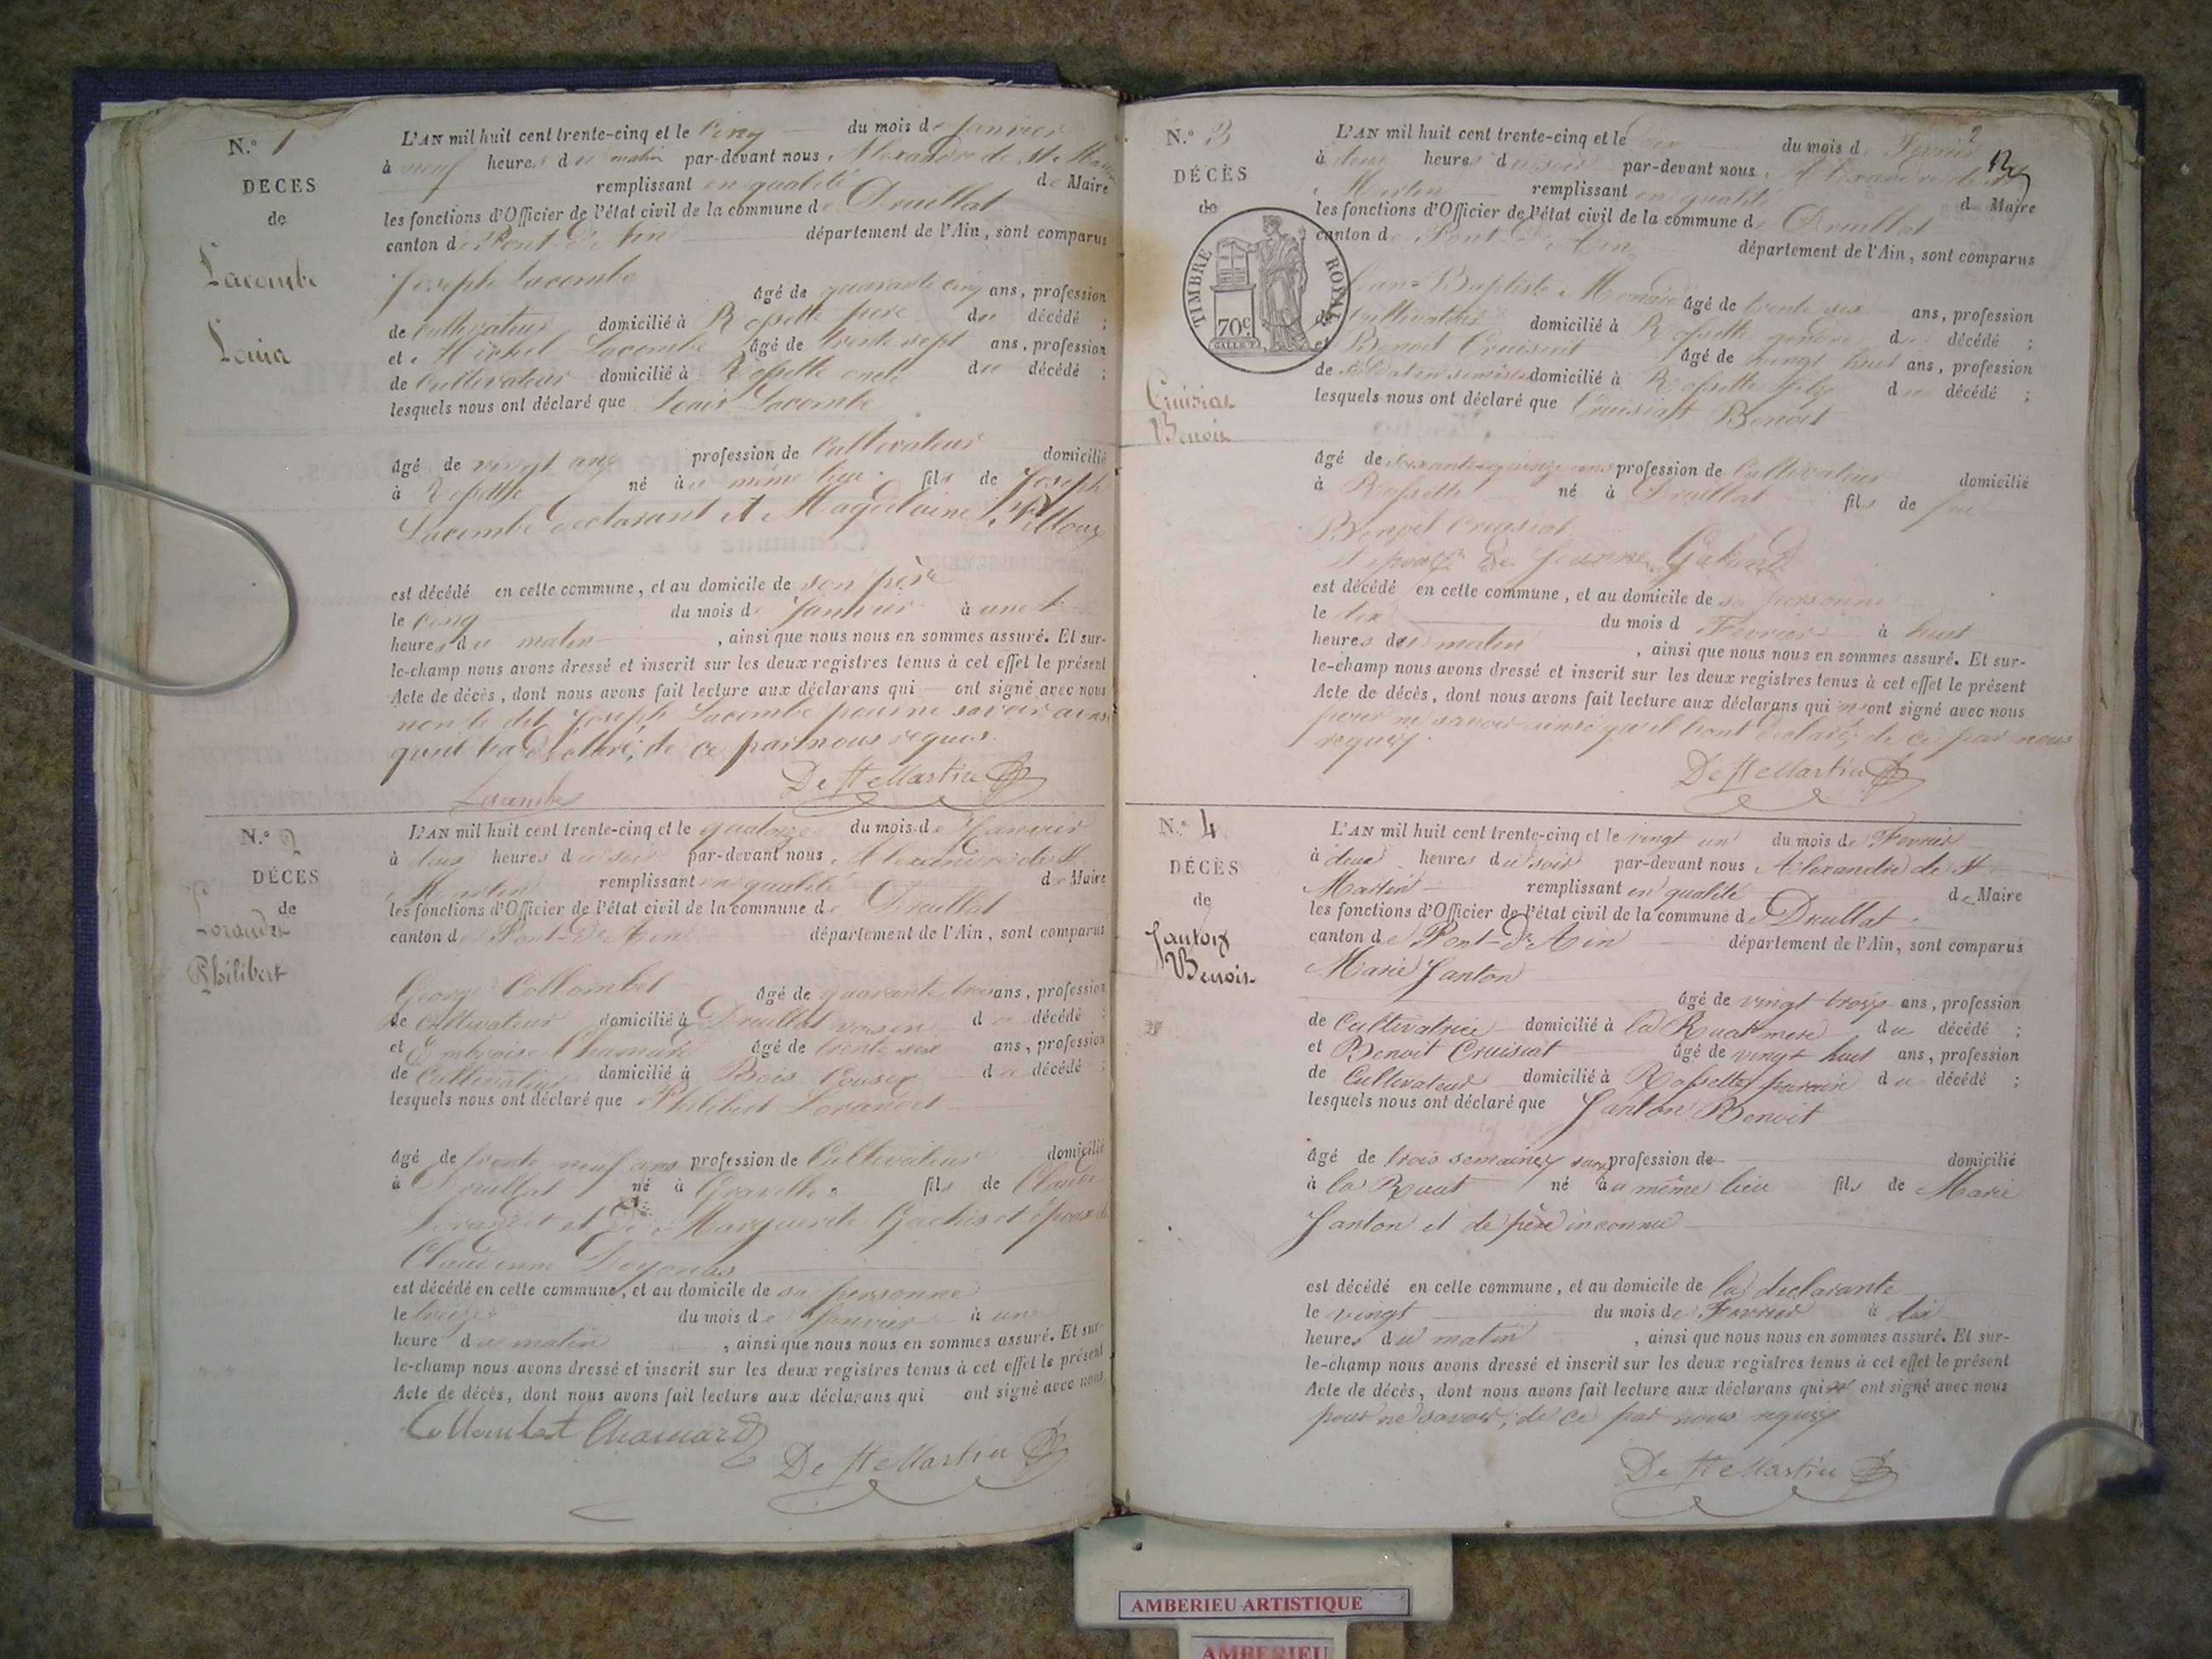 N.° 1
DÉCES
de
Lacombe
Louis
L'AN mil huit cent trente-cinq et le Cinq du mois de Janvier
à neuf heures du matin par-devant nous Alexandre de St Martin
remplissant en qualité de Maire
les fonctions d'Officier de l'état civil de la commune de Druillat
canton de Pont-d'Ain département de l'Ain, sont comparus
Joseph Lacombe
âgé de quarante cinq ans, profession
de Cultivateur domicilié à Rossette père du décédé ;
et Michel Lacombe âgé de trente sept ans, profession
de Cultivateur domicilié à Rossette oncle du décédé ;
lesquels nous ont déclaré que Louis Lacombe
âgé de vingt ans profession de Cultivateur domicilié
à Rossette né au même lieu fils de Joseph
Lacombe déclarant et Magdelaine
est décédé en cette commune, et au domicile de son père
le cinq du mois de Janvier à une
heures du matin , ainsi que nous nous en sommes assuré. Et sur-
le-champ nous avons dressé et inscrit sur les deux registres tenus à cet effet le présent
Acte de décès, dont nous avons fait lecture aux déclarans qui ont signé avec nous
non le dit Joseph Lacombe pour ne savoir ainsi
qu'il l'a déclaré, de ce par nous requis.
Lacombe De St Martin
N.° 2
DÉCES
de
Lorandet
Philibert
L'AN mil huit cent trente-cinq et le quatorze du mois de Janvier
à deux heures du soir par-devant nous Alexandre de St
Martin remplissant en qualité de Maire
les fonctions d'Officier de l'état civil de la commune de Druillat
canton de Pont-d'Ain département de l'Ain, sont comparus
George Collombet âgé de quarante trois ans, profession
de Cultivateur domicilié à Druillat voisin du décédé ;
et Embroise Chamard âgé de trente six ans, profession
de Cultivateur domicilié à Bois Cousin du décédé ;
lesquels nous ont déclaré que Philibert Lorandet
âgé de trente neuf ans profession de Cultivateur domicilié
à Druillat né à Gravelles fils de Claude
Lorandet et de Marguerite et époux de
Claudenne
est décédé en cette commune, et au domicile de sa personne
le treize du mois de Janvier à une
heure du matin , ainsi que nous nous en sommes assuré. Et sur-
le-champ nous avons dressé et inscrit sur les deux registres tenus à cet effet le présent
Acte de décès, dont nous avons fait lecture aux déclarans qui ont signé avec nous
Collombet Chamard De St Martin
N.° 3
DÉCÈS
de
TIMBRE ROYAL
70c
Cruisiat
Benoit
2
L'AN mil huit cent trente-cinq et le dix du mois de Fevrier
à deux heures du soir par-devant nous Alexandre de St
Martin remplissant en qualité de Maire
les fonctions d'Officier de l'état civil de la commune de Druillat
canton de Pont-d'Ain
département de l'Ain, sont comparus
Jean-Baptiste âgé de trente six ans, profession
de Cultivateur domicilié à Rossette gendre du décédé ;
et Benoit Cruisiat âgé de vingt huit ans, profession
de domicilié à Rossette fils du décédé ;
lesquels nous ont déclaré que Cruisiat Benoit
âgé de soixante quinze ans profession de Cultivateur domicilié
à Rossette né à Druillat fils de feu
Benoit Cruisiat
et époux de Jeanne
est décédé en cette commune, et au domicile de sa personne
le dix du mois d Fevrier à huit
heures du matin , ainsi que nous nous en sommes assuré. Et sur-
le-champ nous avons dressé et inscrit sur les deux registres tenus à cet effet le présent
Acte de décès, dont nous avons fait lecture aux déclarans qui n'ont signé avec nous
pour ne savoir ainsi qu'il l'ont déclaré, de ce par nous
requis.
De St Martin
N.° 4
DÉCÈS
de
Janton
Benoit
L'AN mil huit cent trente-cinq et le vingt un du mois de Fevrier
à deux heures du soir par-devant nous Alexandre de St
Martin remplissant en qualité de Maire
les fonctions d'Officier de l'état civil de la commune de Druillat
canton de Pont-d'Ain département de l'Ain, sont comparus
Marie Janton
âgé de vingt trois ans, profession
de Cultivatrice domicilié à la Ruat mere du décédé ;
et Benoit Cruisiat âgé de vingt huit ans, profession
de Cultivateur domicilié à Rossette parain du décédé ;
lesquels nous ont déclaré que Janton Benoit
âgé de trois semaines sans profession de domicilié
à la Ruat né au même lieu fils de Marie
Janton et de père inconnu
est décédé en cette commune, et au domicile de la déclarante
le vingt du mois de Fevrier à dix
heures du matin , ainsi que nous nous en sommes assuré. Et sur-
le-champ nous avons dressé et inscrit sur les deux registres tenus à cet effet le présent
Acte de décès, dont nous avons fait lecture aux déclarans qui n' ont signé avec nous
pour ne savoir, de ce par nous requis
De St Martin
AMBERIEU ARTISTIQUE
AMBERIEU